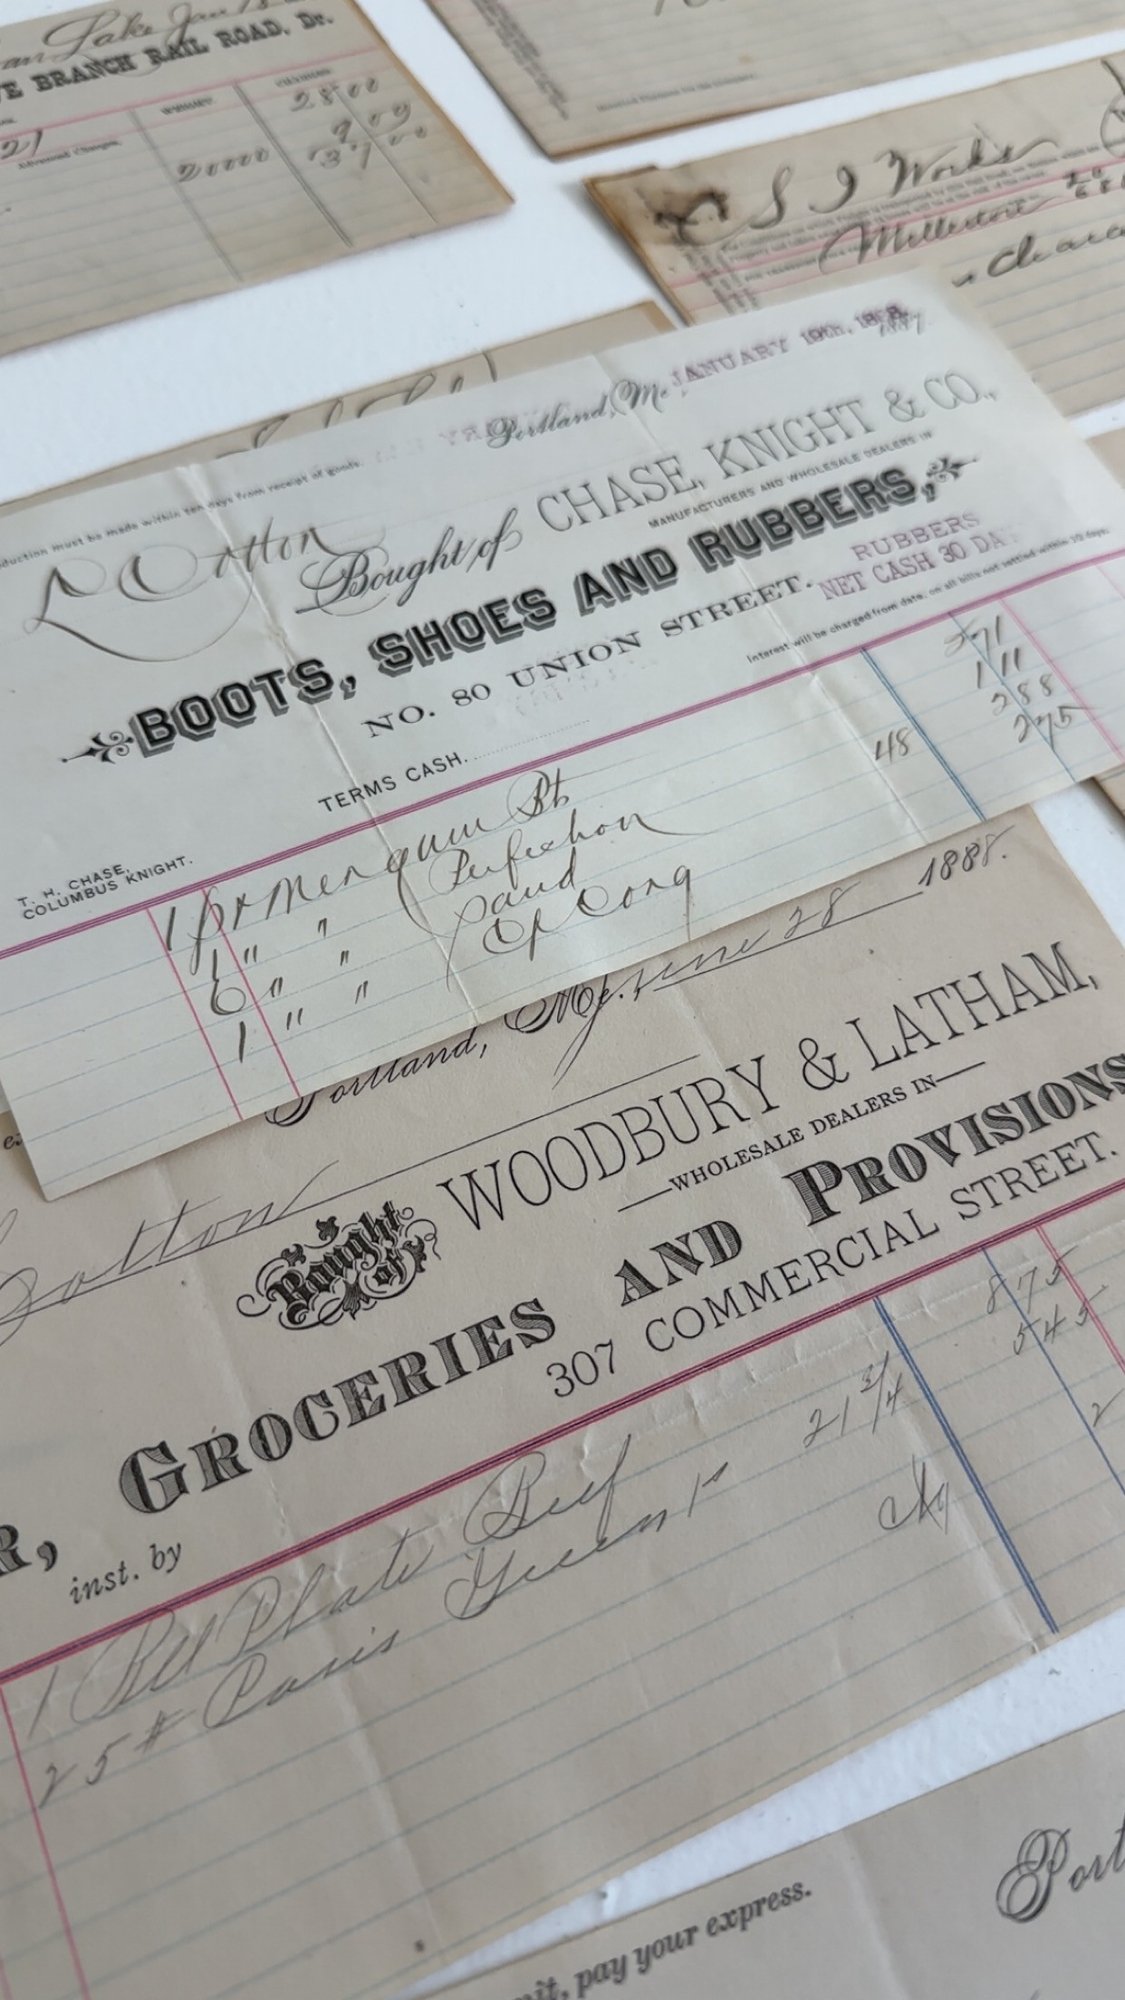 Lake Jan 18
BRANCH RAIL ROAD, Dr.
WEIGHT.
CHARGES.
21
28 00
Advanced Charges,
9 00
20000
37 00
S I Works
Millstone
JANUARY 19th, 188
1887.
Portland, Me.
duction must be made within ten days from receipt of goods.
L Cotton
Bought of CHASE, KNIGHT & CO.,
MANUFACTURERS AND WHOLESALE DEALERS IN
BOOTS, SHOES AND RUBBERS,
RUBBERS
NET CASH 30 DA
NO. 80 UNION STREET.
Interest will be charged from date, on all bills not settled within 30 days.
TERMS CASH.
T. H. CHASE,
COLUMBUS KNIGHT.
1 pr Men gum Bt 371
1 " " Perfection 1 11
6 " " 48 2 88
1 " " Cong 2 75
Portland, Me. June 28 1888.
Cotton
Bought of WOODBURY & LATHAM,
WHOLESALE DEALERS IN
GROCERIES AND PROVISIONS
307 COMMERCIAL STREET.
R,
inst. by
1 Bbl Plate Beef 8 75
25 # Paris Green 1s 21 3/4 5 45
2
Port
mit, pay your express.